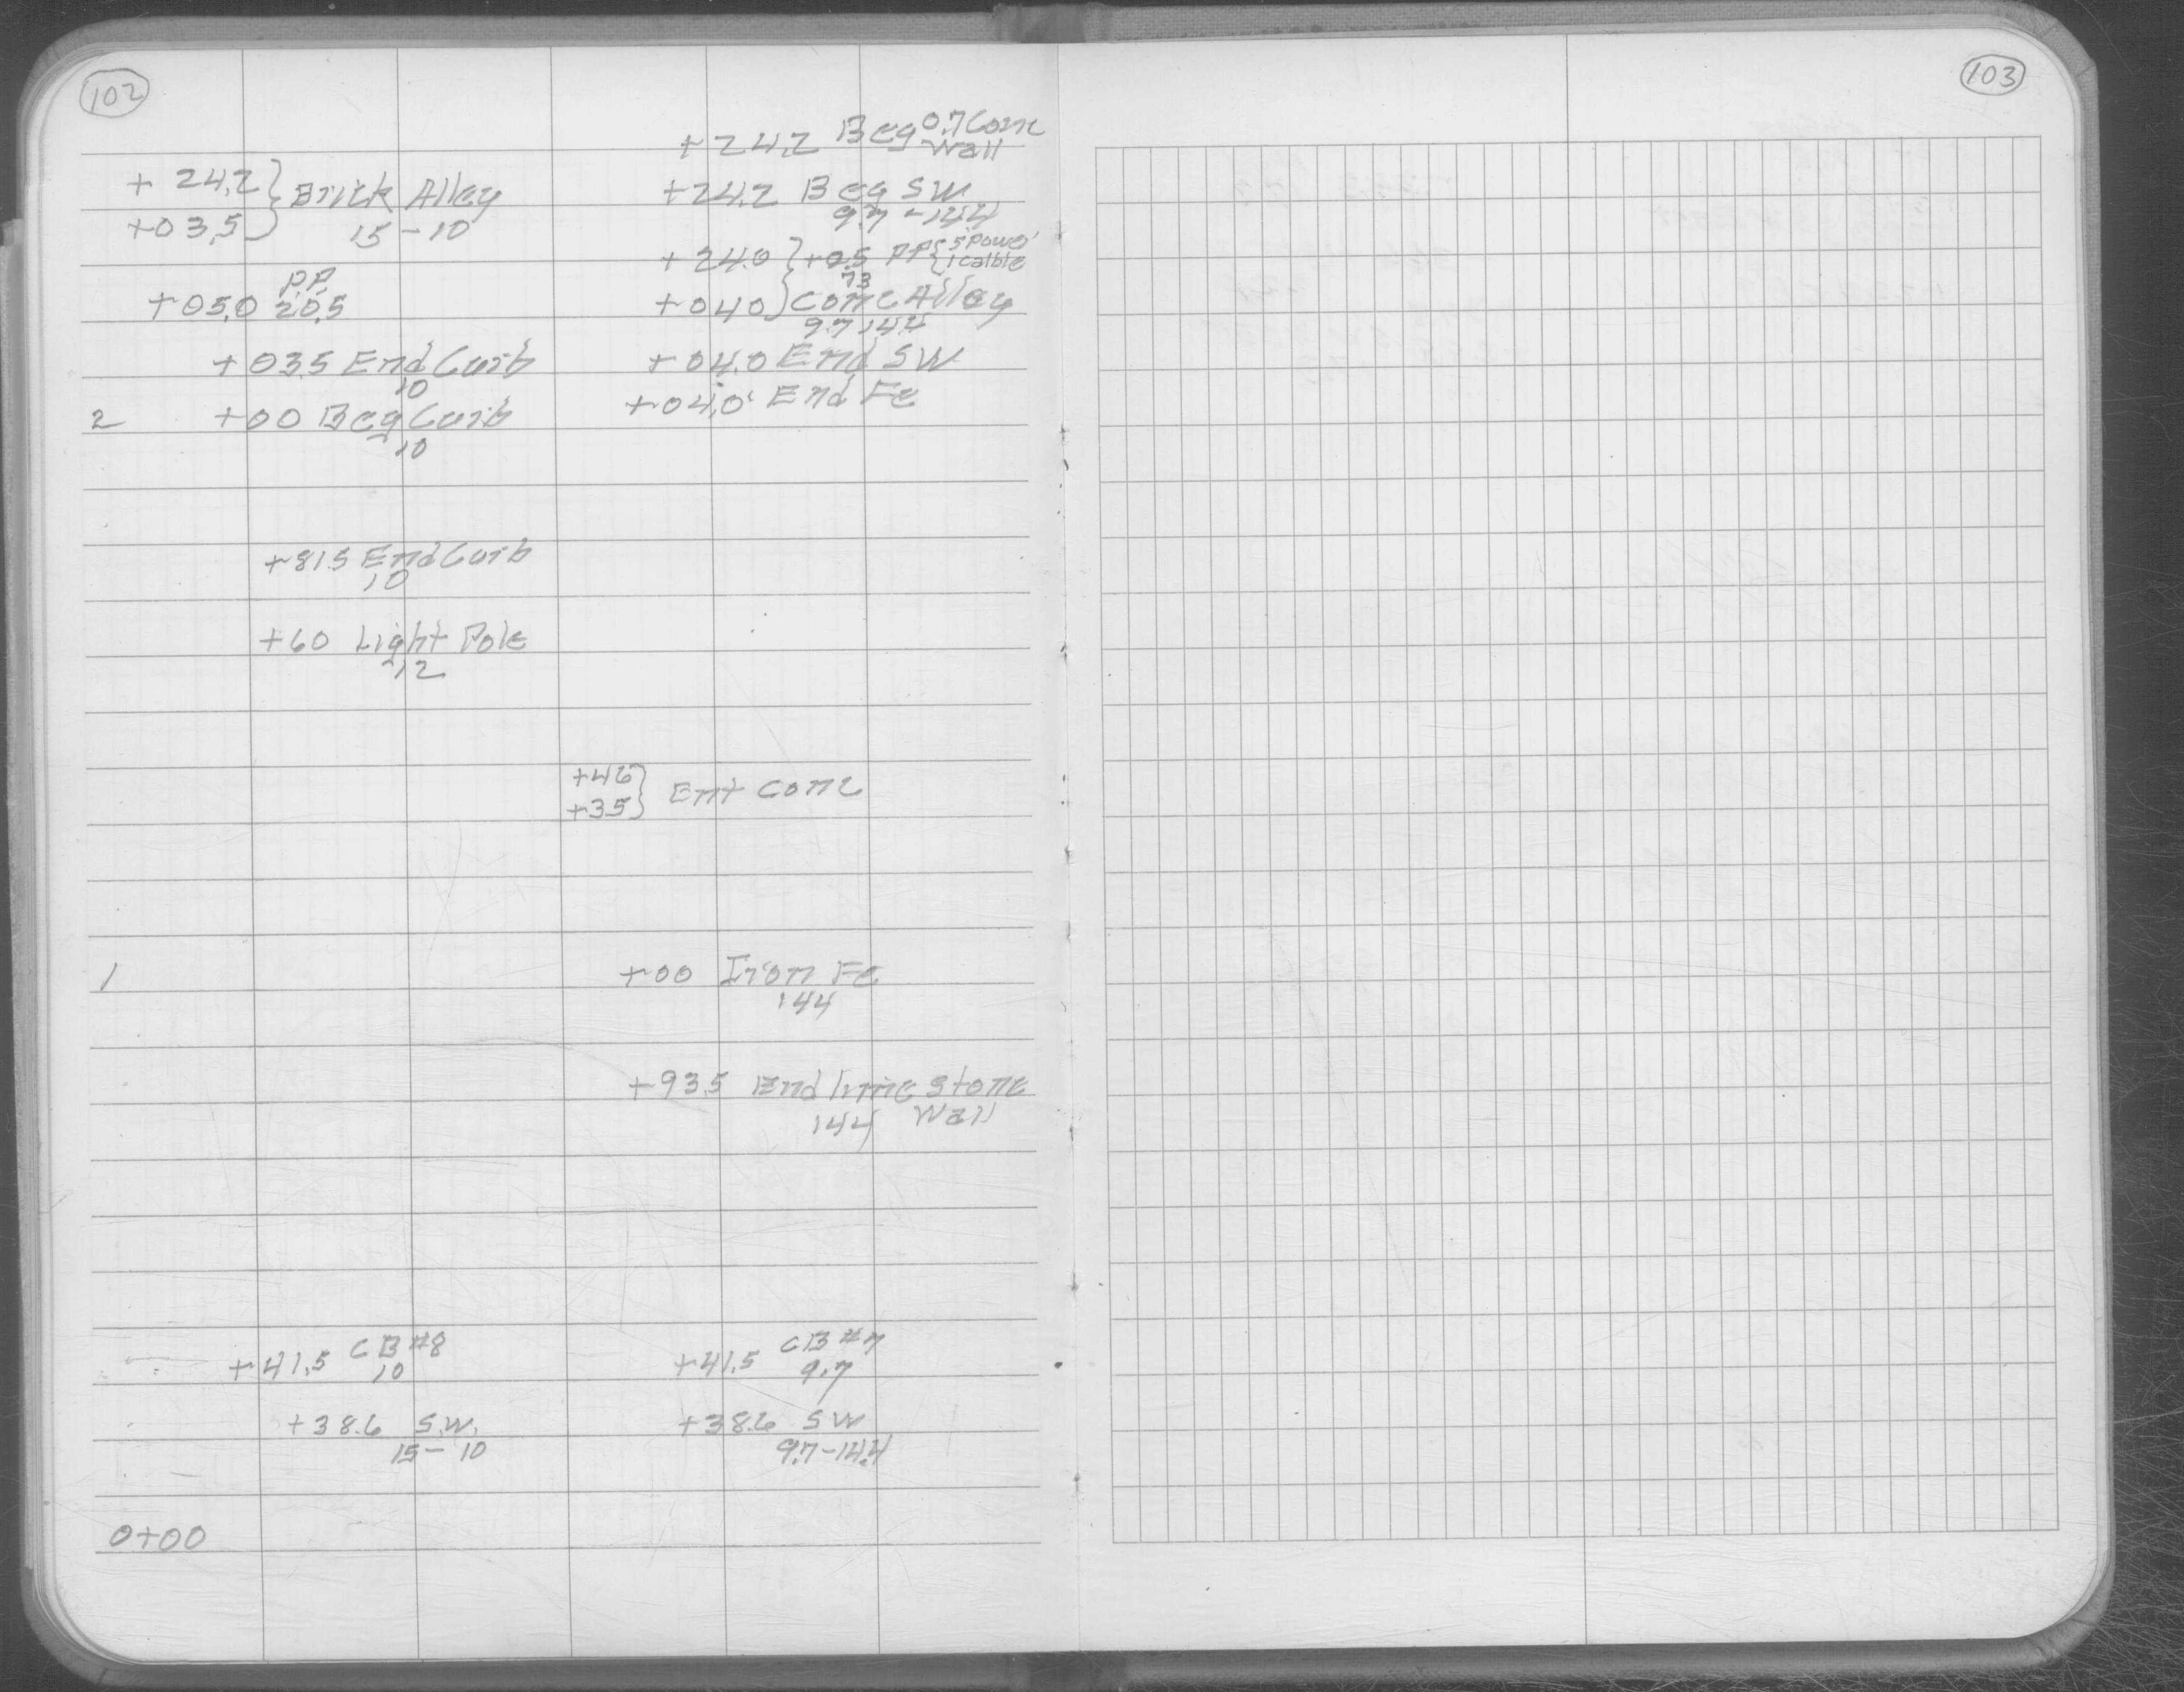 102
103
+24.2 Beg 0.7 Conc
Wall
+24.2 } Brick Alley
+03.5 } 15-10
+24.2 Beg SW
9.7 - 14.4
+24.0 } +0.5 PP { 5 Power
1 calble
73
P.P.
+05.0 20.5
+04.0 } Conc Alley
9.7 14.4
+03.5 End Curb
10
+04.0 End SW
+04.0 End Fe
2 +00 Beg Curb
10
+81.5 End Curb
10
+60 Light Pole
12
+46 } Ent Conc
+35 }
1 +00 Iron Fe
144
+93.5 End lime Stone
144 Wall
+41.5 CB #8
10
+41.5 CB #7
9.7
+38.6 S.W.
15 - 10
+38.6 SW
9.7-14.4
0+00